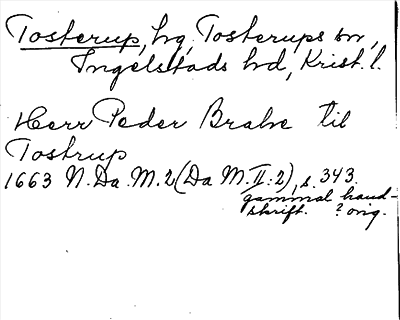 Tosterup, hg, Tosterups sn,
Ingelstads hd, Krist. l.
Herr Peder Brahe til
Tostrup
1663 N. Da. M. 2 (Da M. II: 2), s. 343.
gammal hand-
skrift. ? orig.